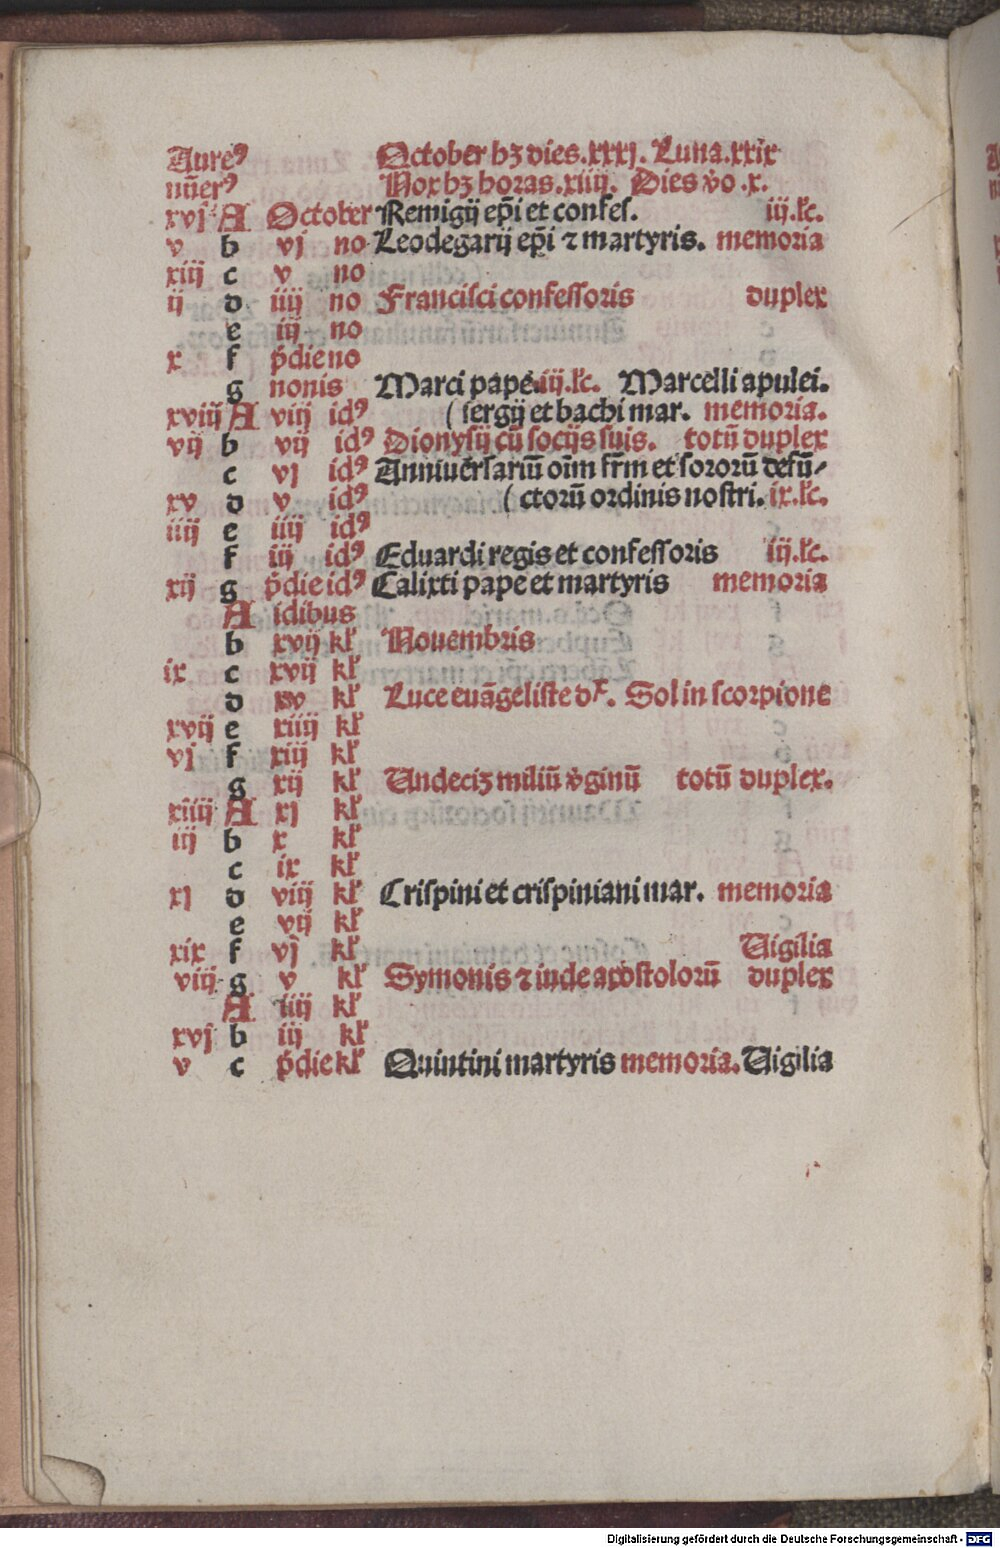 Aureꝰ October hꝫ dies.xxxj. Luna.xxix
nūerꝰ Nox hꝫ horas.xiiij. Dies v̊o .x.
xvj A October Remigij ep̄i et confes. iij.lc̄.
v b vj no Leodegarij ep̄i ⁊ martyris. memoria
xiij c v no
ij d iiij no Francisci confessoris duplex
e iij no
x f p̄die no
g nonis Marci pape.iij.lc̄. Marcelli apulei.
xviij A viij idꝰ ( sergij et bachi mar. memoria.
vij b vij idꝰ Dionysij cū socijs suis. totū duplex
c vj idꝰ Anniuersariū oīm fr̄m et sororū defū-
xv d v idꝰ ( ctorū ordinis nostri. ix.lc̄.
iiij e iiij idꝰ
f iij idꝰ Eduardi regis et confessoris iij.lc̄.
xij g p̄die idꝰ Calixti pape et martyris memoria
A idibus
b xvij kl̄ Nouembris
ix c xvij kl̄
d xv kl̄ Luce euāgeliste dr̄. Sol in scorpione
xvij e xiiij kl̄
vj f xiij kl̄
g xij kl̄ Undeciꝫ miliū v̊ginū totū duplex.
xiiij A xj kl̄
iij b x kl̄
c ix kl̄
xj d viij kl̄ Crispini et crispiniani mar. memoria
e vij kl̄
xix f vj kl̄ Uigilia
viij g v kl̄ Symonis ⁊ iude apostolorū duplex
A iiij kl̄
xvj b iij kl̄
v c p̄die kl̄ Quintini martyris memoria. Uigilia
Digitalisierung gefördert durch die Deutsche Forschungsgemeinschaft - DFG